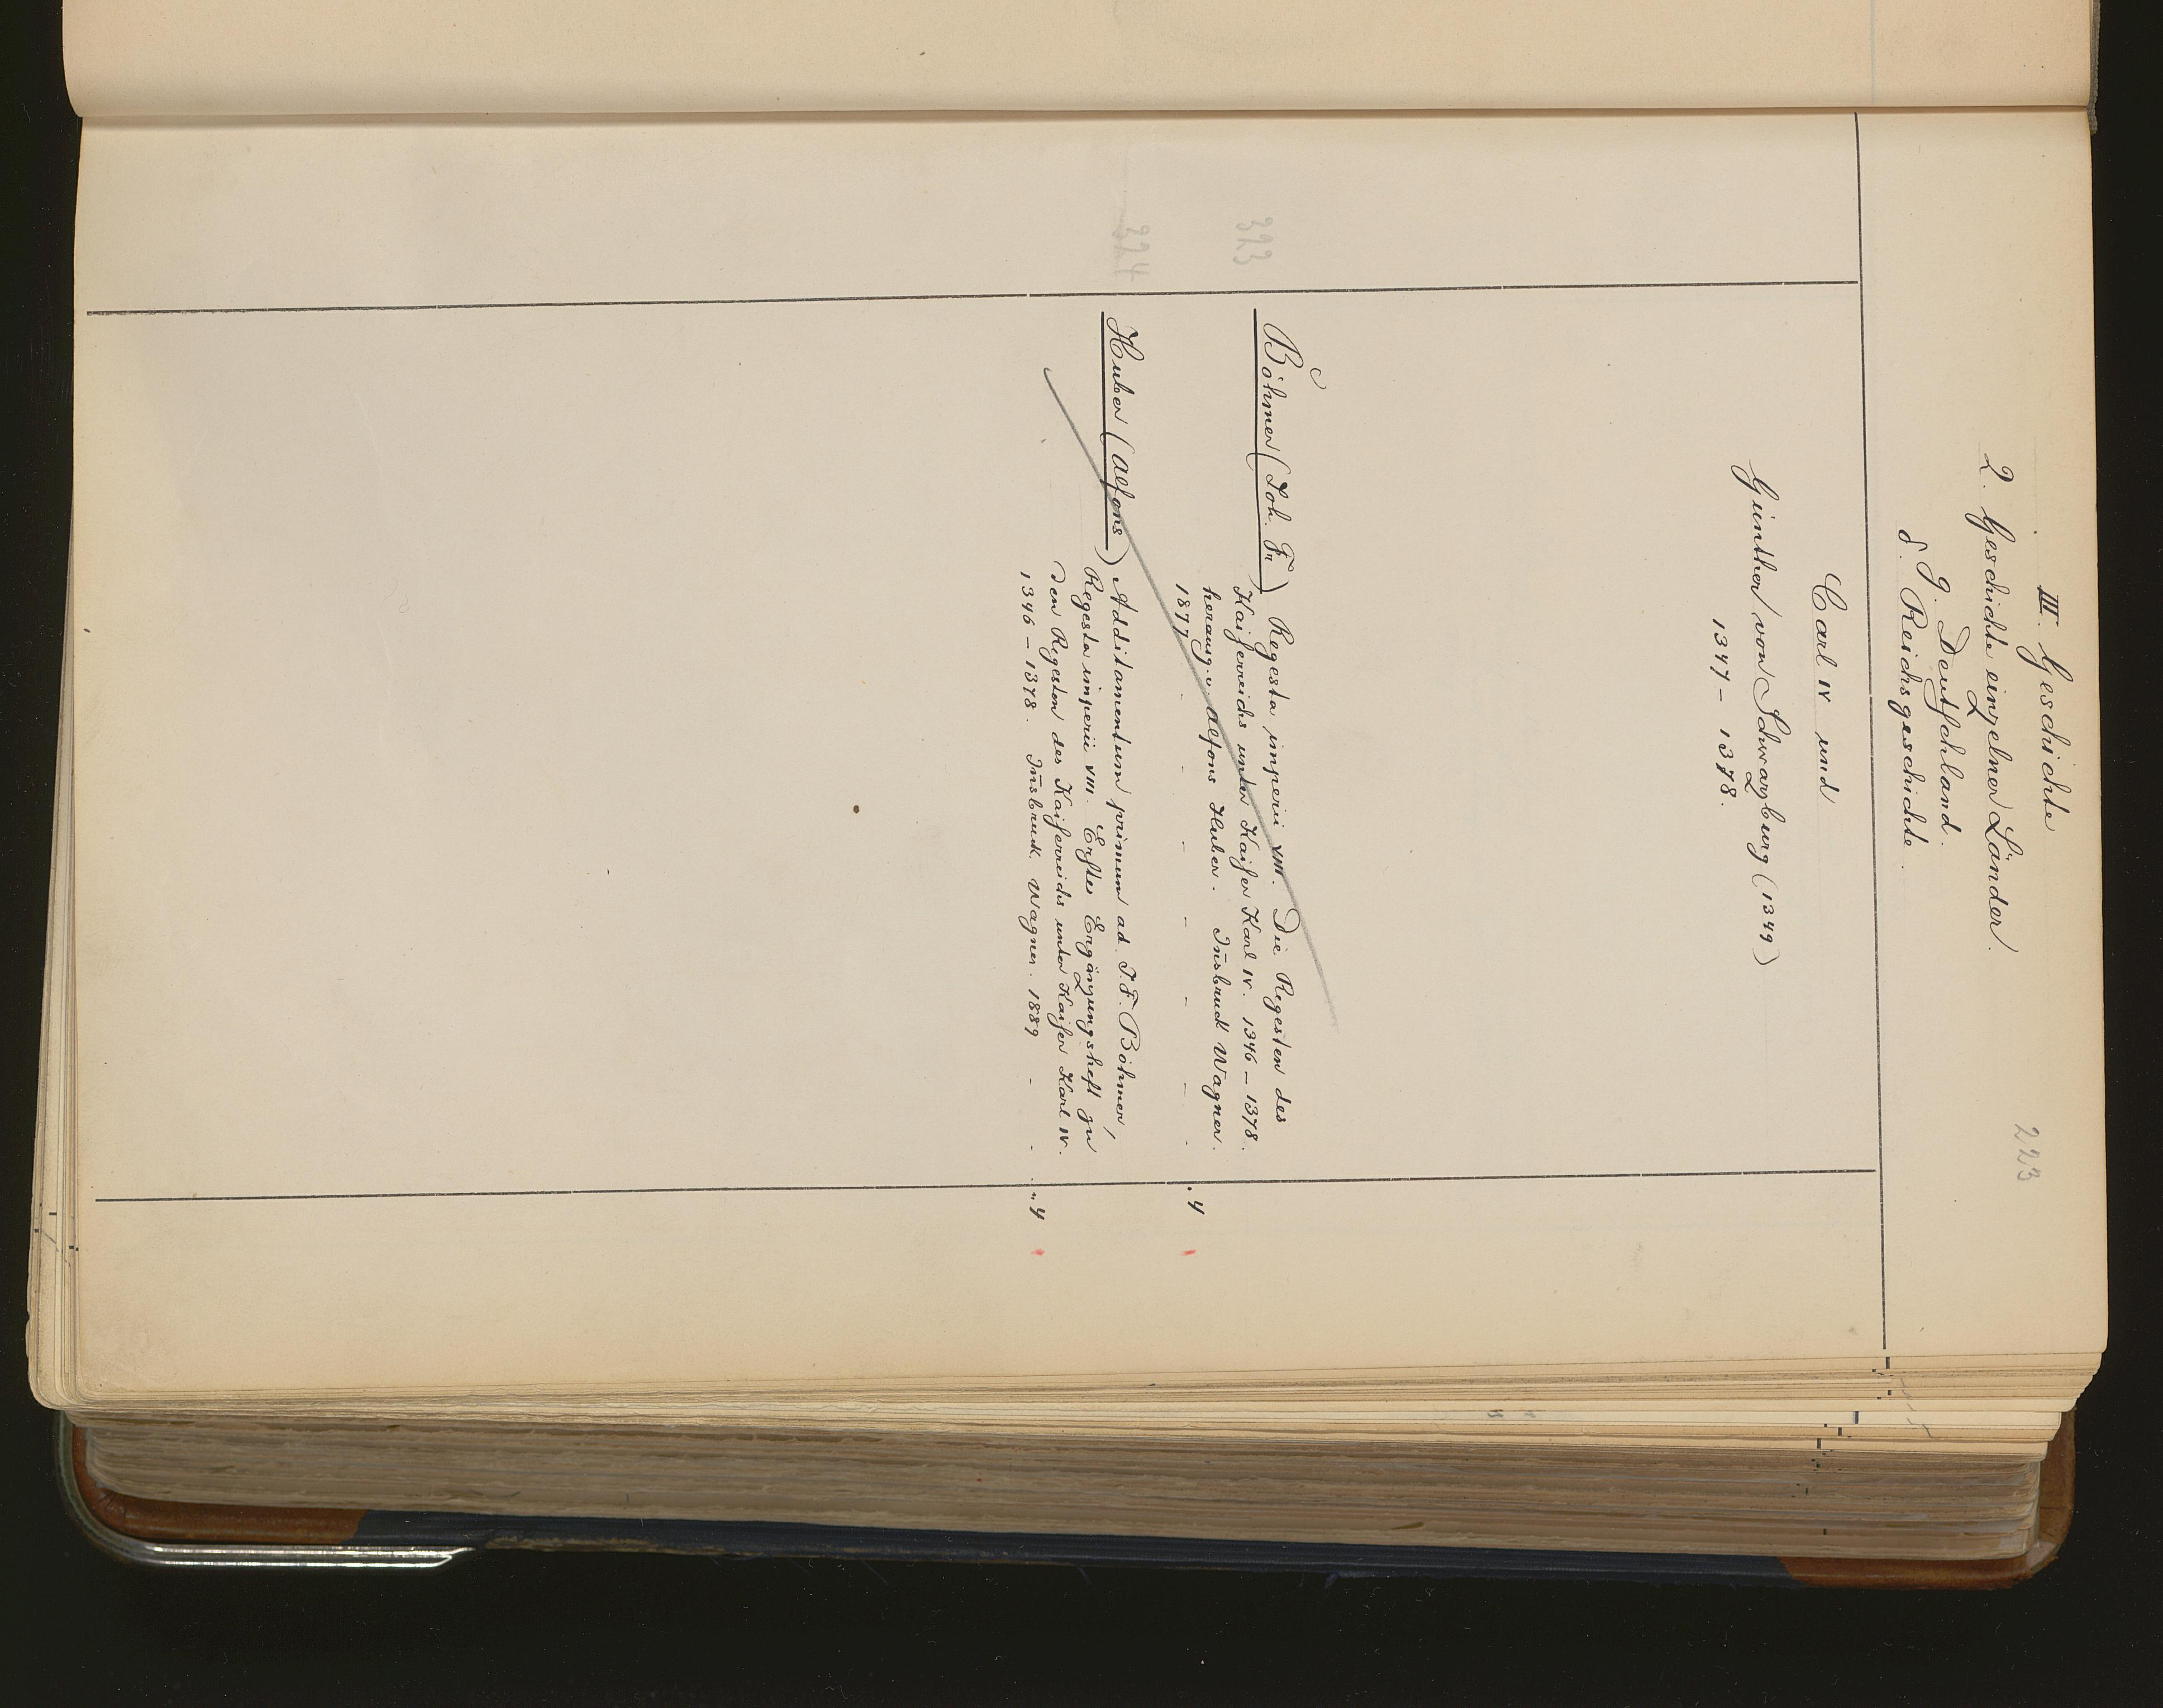 III. Geschichte
223
2. Geschichte einzelner Länder.
g. Deutschland.
δ. Reichsgeschichte.
Carl IV und
Günther von Schwarzburg (1349)
1347 - 1378.
323
Böhmer (Joh. Fr) Regesta imperii VIII. Die Regesten des
Kaiserreichs unter Kaiser Karl IV. 1346 - 1378.
herausg. v. Alfons Huber. Iñsbruck Wagner.
1877 . - - - - - . . 4
324
Huber (Alfons) Additamentum primum ad J. F. Böhmer,
Regesta imperii VIII. Erstes Ergänzungsheft zu
den Regesten des Kaiserreichs unter Kaiser Karl IV.
1346 - 1378. Iñsbruck. Wagner. 1889 - . . " 4